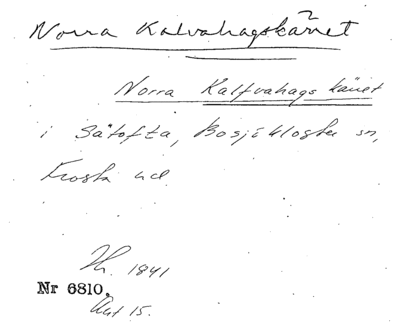 Norra Kalvahagskärret
Norra Kalfvahags käret
i Sätofta, Bosjökloster sn,
Frosta hd
1841
Nr 6810.
Akt 15.